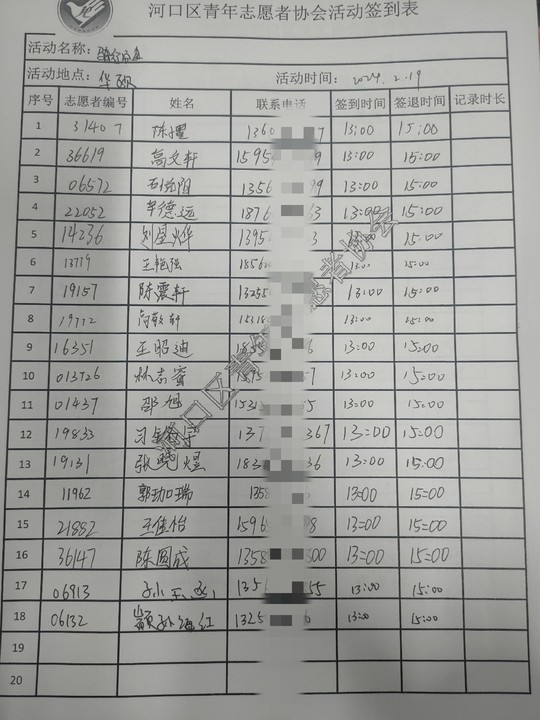 河口区青年志愿者协会活动签到表
活动名称：
活动地点： 活动时间：2024.2.19
序号 志愿者编号 姓名 联系电话 签到时间 签退时间 记录时长
1 31407 陈 1360 7 13:00 15:00
2 36619 高文轩 1595 9 13:00 15:00
3 06572 1356 99 13:00 15:00
4 22052 牟德运 1876 63 13:00 15:00
5 14236 刘星烨 1395 3 15:00
6 13779 王艳强 1856 13:00 15:00
7 19157 陈震轩 13:00 15:00
8 13:00 15:00
9 16351 王昭迪 6 13:00 15:00
10 013726 林志蜜 7 13:00 15:00
11 01437 邵旭 5 13:00 15:00
12 19833 137 367 13:00 15:00
13 19131 张晓煜 183 36 13:00 15:00
14 11962 郭珈瑞 135 13:00 15:00
15 21882 王佳怡 1596 8 13:00 15:00
16 36147 陈圆成 1358 00 13:00 15:00
17 06913 孙玉 135 55 13:00 15:00
18 06132 颛孙海红 1325 6 13:00 15:00
19
20
河口区青年志愿者协会